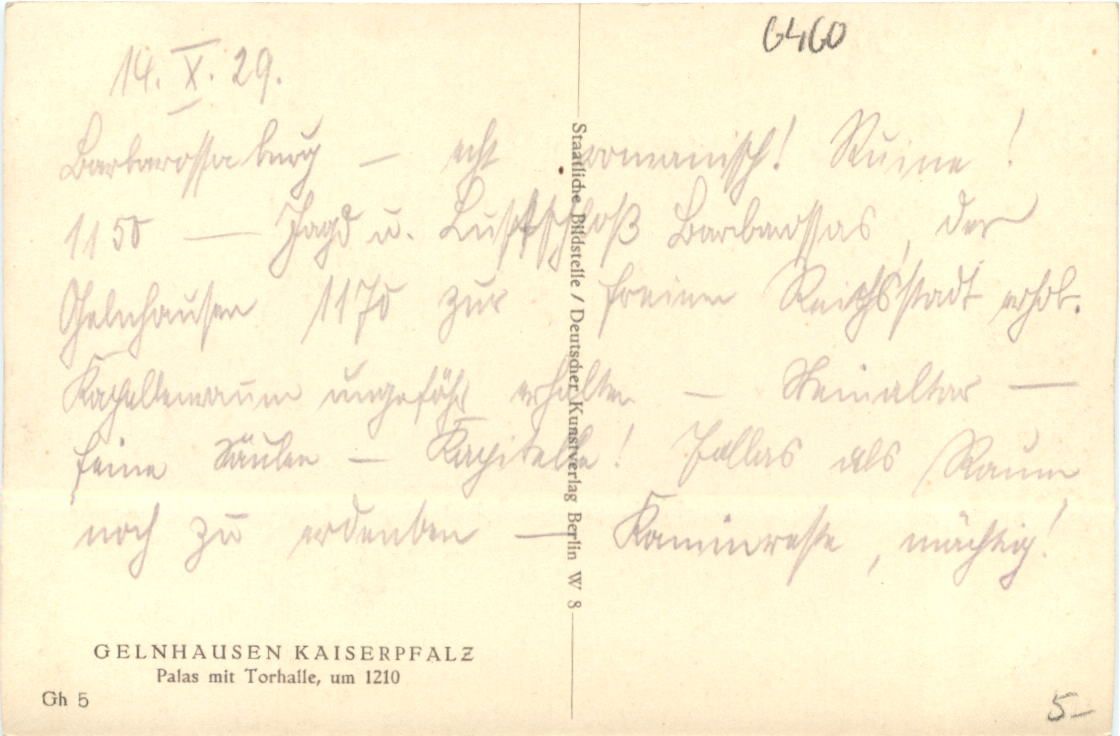 6460
14. X. 29.
Barbarossaburg — echt romanisch! Ruine!
1150 — Jagd u. Lustschloß Barbarossas, der
Gelnhausen 1170 zur freien Reichsstadt erhob.
Kapellenraum ungefähr erhalten — Steinaltar —
feine Säulen — Kapitelle! Pallas als Raum
noch zu erdenken — Kaminreste, mächtig!
Staatliche Bildstelle / Deutscher Kunstverlag Berlin W 8
GELNHAUSEN KAISERPFALZ
Palas mit Torhalle, um 1210
Gh 5
5-